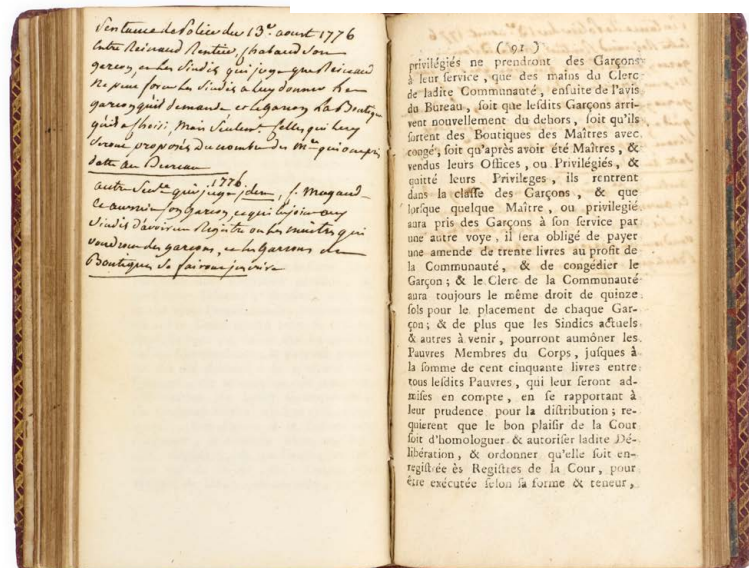 Sentence de Police du 13e. aoust 1776
Entre Reinaud Rentier, Chabaud son
garçon, et les Sindics qui juge que Reinaud
ne peut forcer les Sindics a luy donner le
garçon qu'il demande et le garçon la Boutique
qu'il a choisi, mais seulemt. celles qui luy
seront proposés du nombre des Mes. qui ont pris
datte au Bureau
autre Sentce qui juge idem, 1776
garçon, et qui enjoint aux
Sindics d'avoir un Registre ou les maitres qui
voudront des garçons, et les garçons de
Boutiques se fairont inscrire
( 91 )
privilégiés ne prendront des Garçons
à leur ſervice, que des mains du Clerc
de ladite Communauté, enſuite de l'avis
du Bureau, ſoit que leſdits Garçons arri-
vent nouvellement du dehors, ſoit qu'ils
ſortent des Boutiques des Maîtres avec
congé, ſoit qu'après avoir été Maîtres, &
vendus leurs Offices, ou Privilégiés, &
quitté leurs Privileges, ils rentrent
dans la claſſe des Garçons, & que
lorſque quelque Maître, ou privilegié
aura pris des Garçons à ſon ſervice par
une autre voye, il ſera obligé de payer
une amende de trente livres au profit de
la Communauté, & de congédier le
Garçon ; & le Clerc de la Communauté
aura toujours le même droit de quinze
ſols pour le placement de chaque Gar-
çon ; & de plus que les Sindics actuels
& autres à venir, pourront aumôner les
Pauvres Membres du Corps, juſques à
la ſomme de cent cinquante livres entre
tous leſdits Pauvres, qui leur ſeront ad-
miſes en compte, en ſe rapportant à
leur prudence pour la diſtribution ; re-
quierent que le bon plaiſir de la Cour
ſoit d'homologuer & autoriſer ladite Dé-
libération, & ordonner qu'elle ſoit en-
regiſtrée ès Regiſtres de la Cour, pour
être exécutée ſelon ſa forme & teneur,